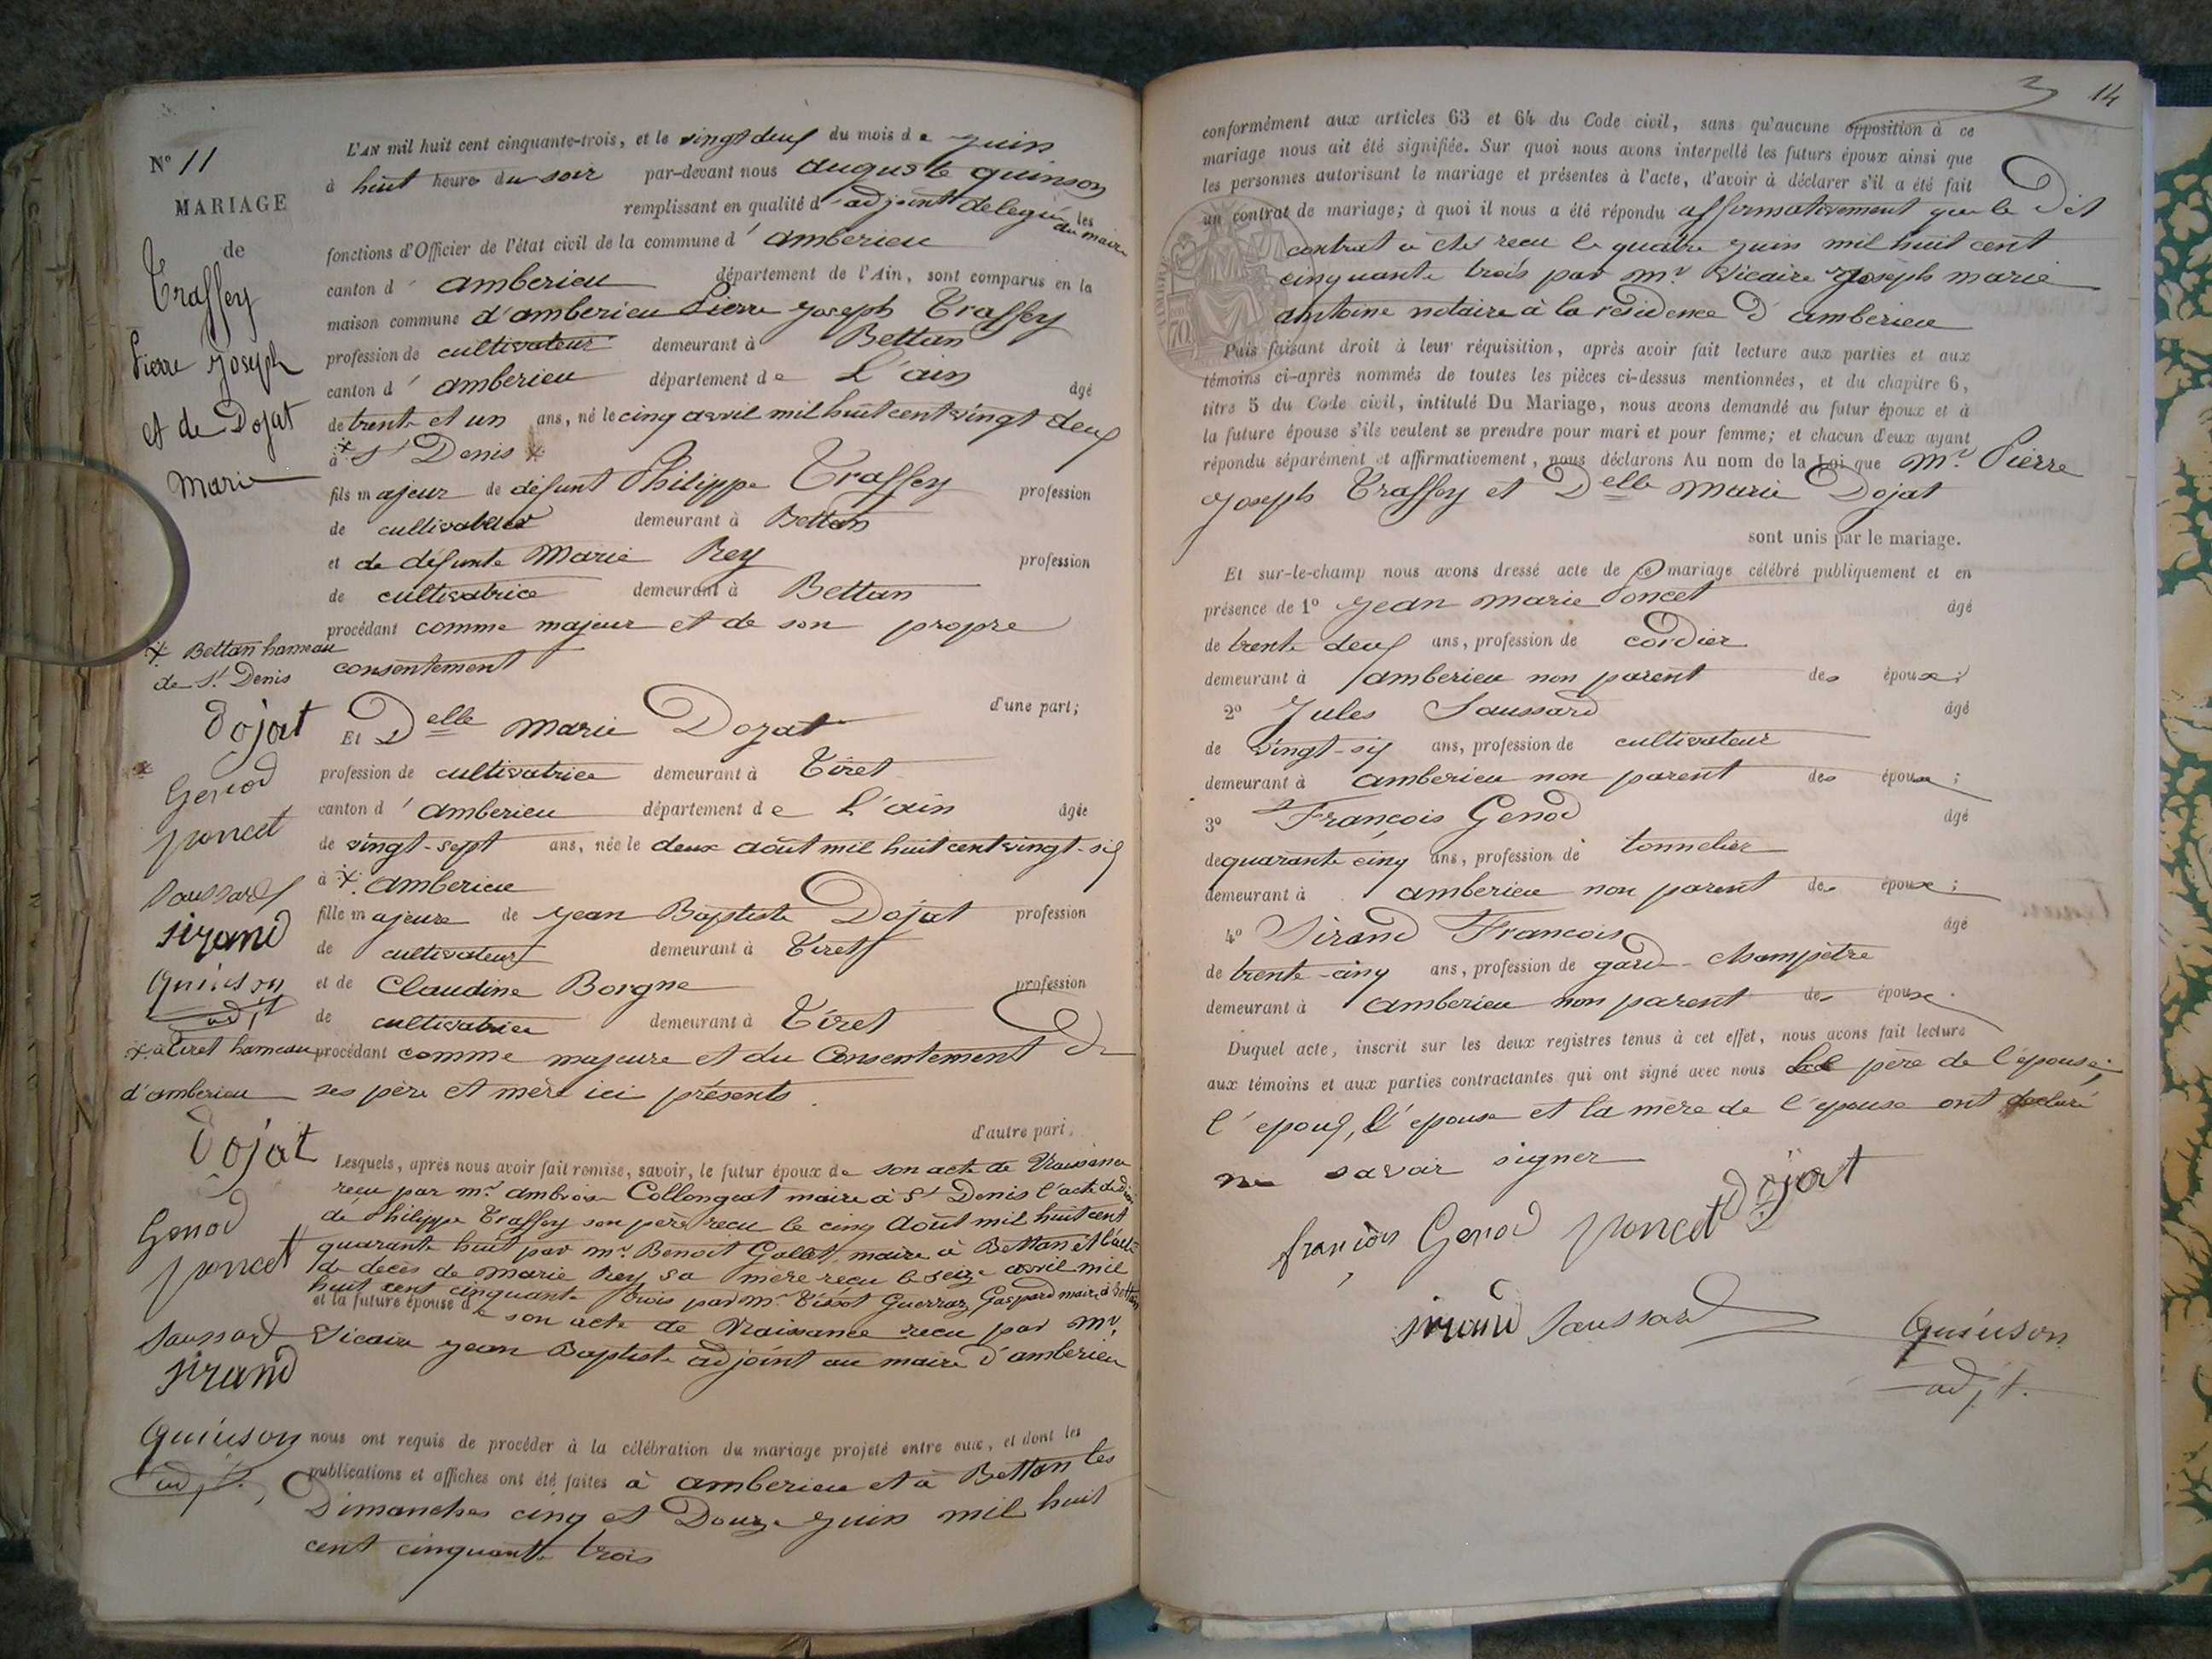 N° 11
MARIAGE
de
Traffey
Pierre Joseph
et de Dojat
Marie
L'AN mil huit cent cinquante-trois, et le vingt deux du mois de juin
à huit heure du soir par-devant nous auguste quinson
remplissant en qualité d'adjoint delegué du maire les
fonctions d'Officier de l'état civil de la commune d'amberieu
canton d'amberieu département de l'Ain, sont comparus en la
maison commune d'amberieu Pierre Joseph Traffey
profession de cultivateur demeurant à Bettan
canton d'amberieu département de L'ain âgé
de trente et un ans, né le cinq avril mil huit cent vingt deux
à * St Denis *
fils majeur de défunt Philippe Traffey profession
de cultivateur demeurant à Bettan
et de défunte Marie Rey profession
de cultivatrice demeurant à Bettan
procédant comme majeur et de son propre
consentement
* Bettan hameau
de St Denis
Dojat
Genod
poncet
Saussard
Sirand
Quinson
adjt
d'une part;
Et Delle Marie Dojat
profession de cultivatrice demeurant à Tiret
canton d'amberieu département de L'ain âgée
de vingt-sept ans, née le deux août mil huit cent vingt-six
à * amberieu
fille majeure de Jean Baptiste Dojat profession
de cultivateur demeurant à Tiret
et de Claudine Borgne profession
de cultivatrice demeurant à Tiret
procédant comme majeure et du Consentement de
ses père et mère ici présents
* à Tiret hameau
d'amberieu
Dojat
Genod
poncet
Saussard
Sirand
Quinson
adjt.
d'autre part;
Lesquels, après nous avoir fait remise, savoir, le futur époux de son acte de Naissance
recu par mr. ambroise Collongeat maire à St Denis l'acte de
de Philippe Traffey son père recu le cinq Août mil huit cent
quarante huit par mr. Benoit Gallet maire à Bettan et l'acte
de decès de Marie Rey sa mère recu le seize avril mil
huit cent cinquante trois par Mr. Tissot Guerraz Gaspard maire à Bettan
et la future épouse de son acte de Naissance recu par Mr.
Vicaire Jean Baptiste adjoint au maire d'amberieu
nous ont requis de procéder à la célébration du mariage projeté entre eux, et dont les
publications et affiches ont été faites à amberieu et à Bettan les
Dimanches cinq et Douze juin mil huit
cent cinquante trois
14
conformément aux articles 63 et 64 du Code civil, sans qu'aucune opposition à ce
mariage nous ait été signifiée. Sur quoi nous avons interpellé les futurs époux ainsi que
les personnes autorisant le mariage et présentes à l'acte, d'avoir à déclarer s'il a été fait
un contrat de mariage; à quoi il nous a été répondu affirmativement que le Dit
contrat a été recu le quatre juin mil huit cent
cinquante trois par mr. Vicaire Joseph marie
antoine notaire à la residence D'amberieu
Puis faisant droit à leur réquisition, après avoir fait lecture aux parties et aux
témoins ci-après nommés de toutes les pièces ci-dessus mentionnées, et du chapitre 6,
titre 5 du Code civil, intitulé Du Mariage, nous avons demandé au futur époux et à
la future épouse s'ils veulent se prendre pour mari et pour femme; et chacun d'eux ayant
répondu séparément et affirmativement, nous déclarons Au nom de la Loi que Mr. Pierre
Joseph Traffey et Delle Marie Dojat
sont unis par le mariage.
Et sur-le-champ nous avons dressé acte de ce mariage célébré publiquement et en
présence de 1° Jean Marie Poncet âgé
de trente deux ans, profession de cordier
demeurant à amberieu non parent des époux;
2° Jules Saussard âgé
de vingt-six ans, profession de cultivateur
demeurant à amberieu non parent des époux;
3° François Genod âgé
de quarante cinq ans, profession de tonnelier
demeurant à amberieu non parent des époux;
4° Sirand Francois âgé
de trente-cinq ans, profession de garde-champêtre
demeurant à amberieu non parent des époux.
Duquel acte, inscrit sur les deux registres tenus à cet effet, nous avons fait lecture
aux témoins et aux parties contractantes qui ont signé avec nous père de l'épouse;
l'epoux, l'epouse et la mère de l'epouse ont declaré
ne savoir signer
françois Genod poncet Dojat
Sirand Saussard Quinson
adjt.